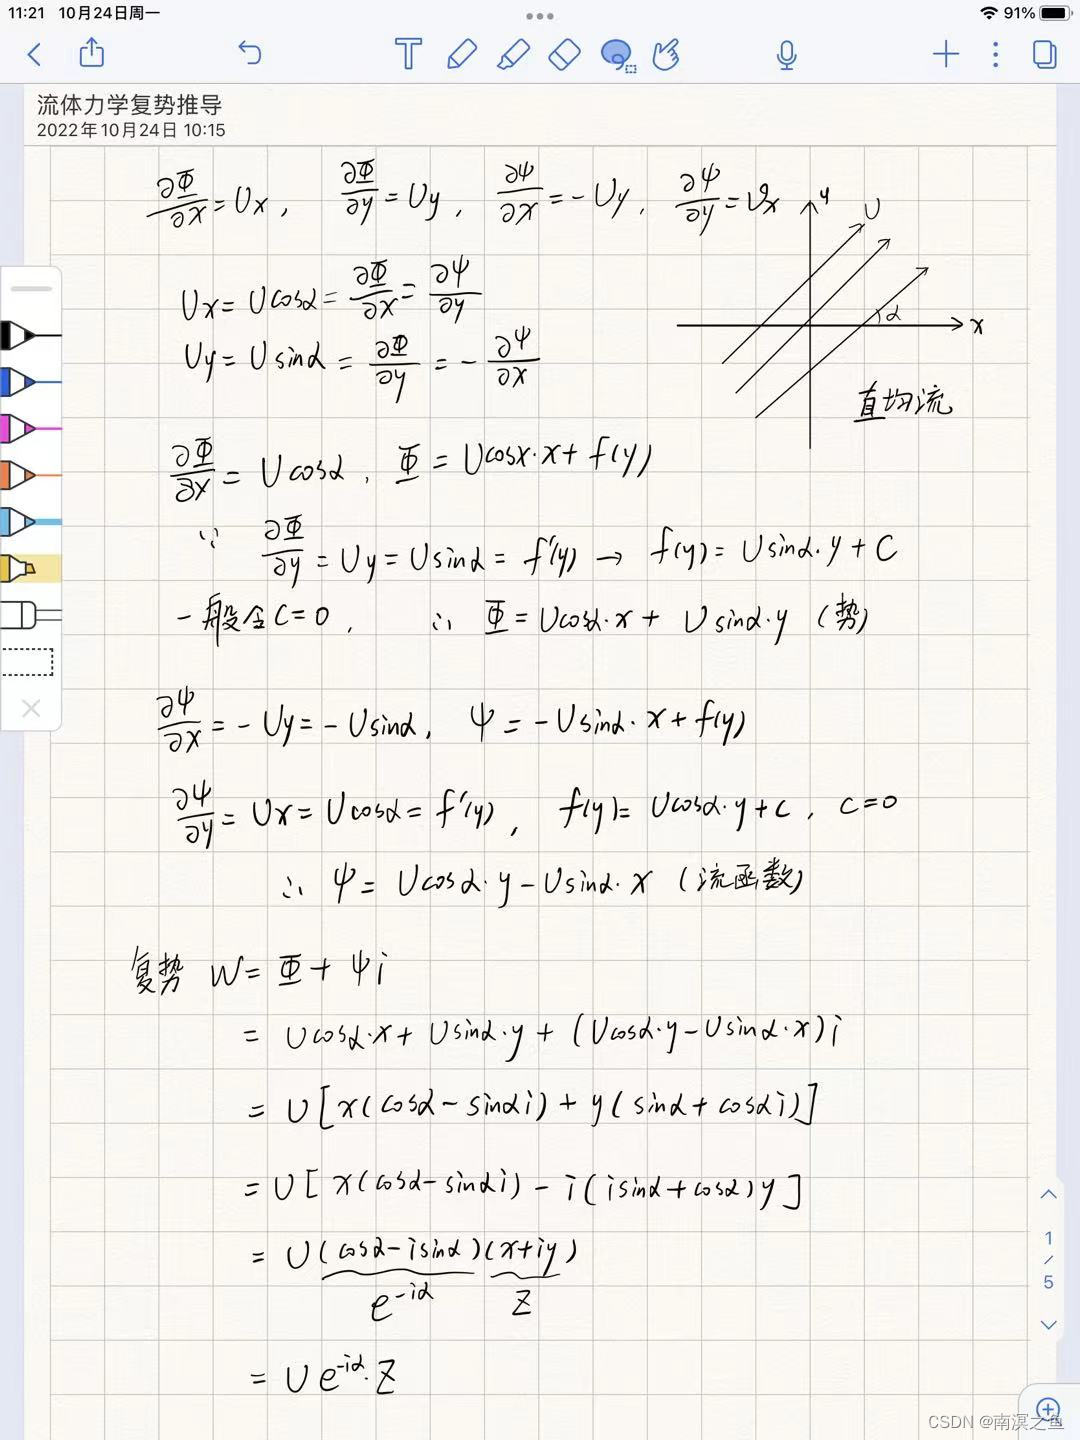 11:21 10月24日周一
91%
流体力学复势推导
2022年10月24日 10:15
∂Φ/∂x = Ux, ∂Φ/∂y = Uy, ∂Ψ/∂x = -Uy, ∂Ψ/∂y = Ux
y
U
Ux = Ucosα = ∂Φ/∂x = ∂Ψ/∂y
α
x
Uy = Usinα = ∂Φ/∂y = -∂Ψ/∂x
直均流
∂Φ/∂x = Ucosα, Φ = Ucosα·x + f(y)
∵ ∂Φ/∂y = Uy = Usinα = f'(y) → f(y) = Usinα·y + C
一般令C=0, ∴ Φ = Ucosα·x + Usinα·y (势)
∂Ψ/∂x = -Uy = -Usinα, Ψ = -Usinα·x + f(y)
∂Ψ/∂y = Ux = Ucosα = f'(y), f(y) = Ucosα·y + C, C=0
∴ Ψ = Ucosα·y - Usinα·x (流函数)
复势 W = Φ + Ψi
= Ucosα·x + Usinα·y + (Ucosα·y - Usinα·x)i
= U[x(cosα - sinαi) + y(sinα + cosαi)]
= U[x(cosα - sinαi) - i(isinα + cosα)y]
= U(cosα - isinα)(x+iy)
e^-iα z
= Ue^-iα·z
1/5
CSDN @南溟之鱼